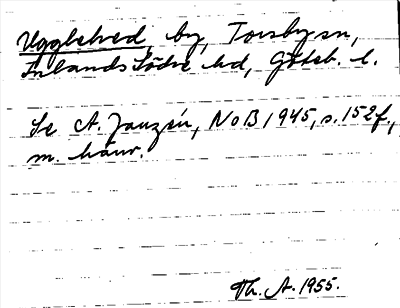 Ugglekved, by, Torsby sn,
Inlands Södre hd, Göteb. l.
Se A. Janzén, NoB 1945, s. 152 f.,
m. hänv.
Th. A. 1955.